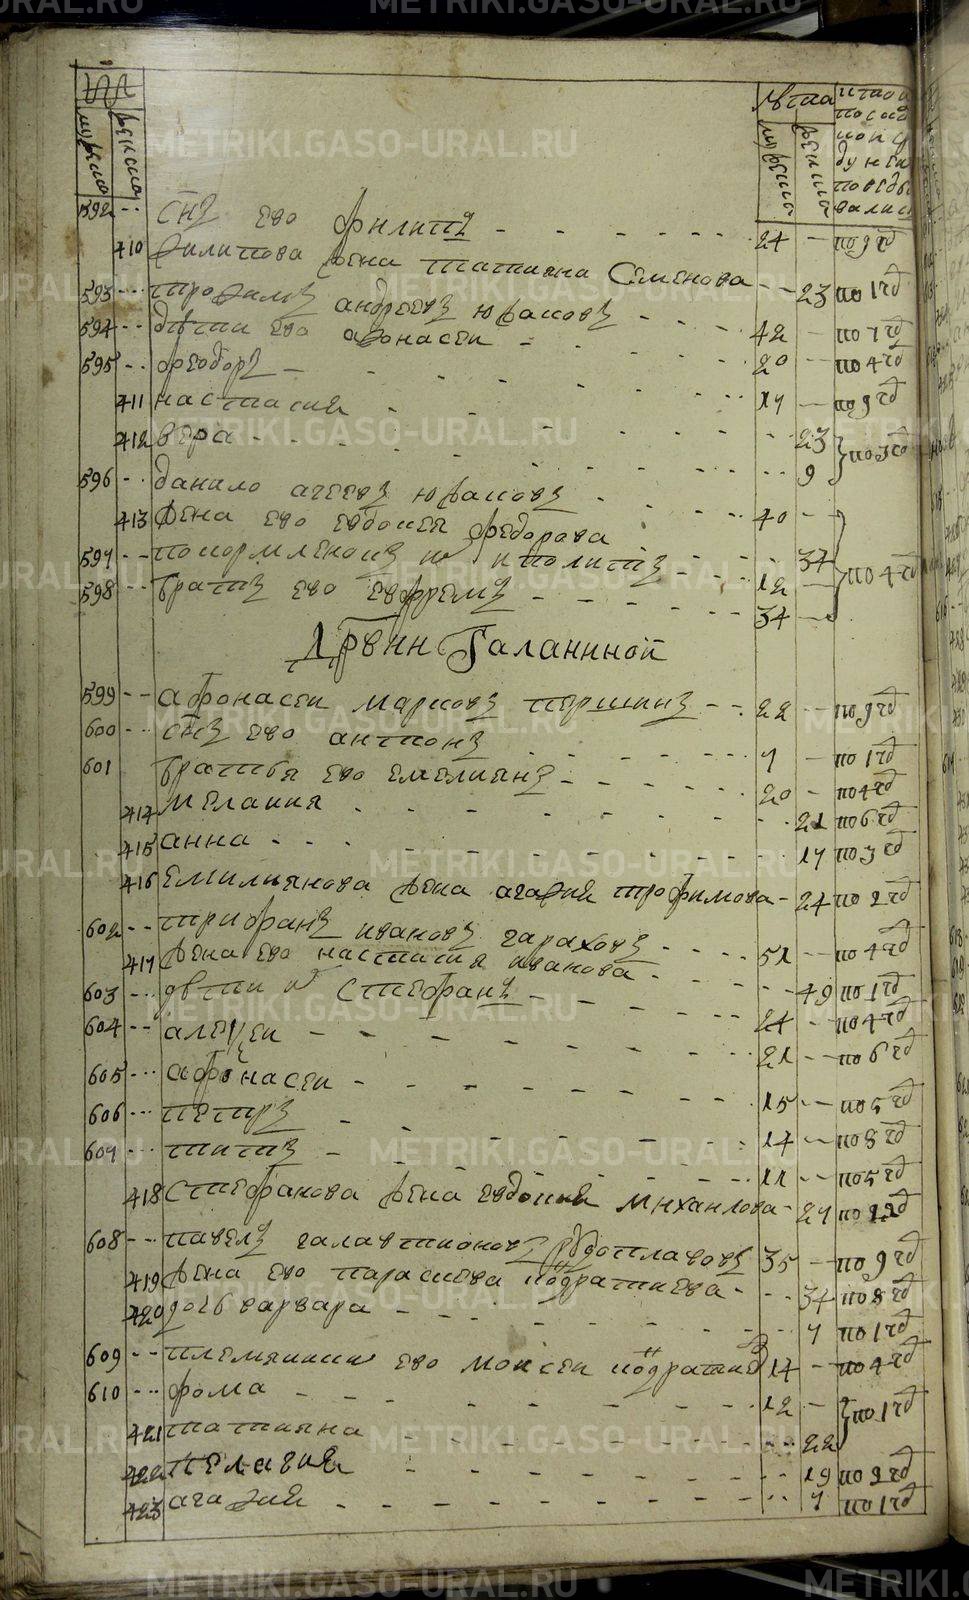 METRIKI.GASO-URAL.RU
лета
мужеска женска
мужеска женска
592 снъ ево филипъ 24 по 9 гд
410 филипова жена татиана семенова 23 по 1 гд
593 трофимъ андреевъ юрасовъ 42 по 7 гд
594 дѣти ево афонасеи 20 по 4 гд
595 феодоръ 17 по 9 гд
411 настасия 23
412 вера 9 по 3 гд
596 данило агеевъ юрасовъ 40
413 жена ево евдокея федорова 37
597 покормленокъ ипполитъ 12 по 4 гд
598 братъ ево евфремъ 34
Дрвни Галаниной
599 афонасеи марковъ першинъ 22 по 9 гд
600 снъ ево антонъ 7 по 1 гд
601 братья ево емелиянъ 20 по 4 гд
414 мелания 21 по 6 гд
415 анна 17 по 3 гд
416 емилиянова жена агафия трофимова 24 по 2 гд
602 трифанъ ивановъ гараховъ 51 по 4 гд
417 жена ево настасия иванова 49 по 1 гд
603 дѣти стефанъ 24 по 4 гд
604 алеѯеи 21 по 6 гд
605 афонасеи 15 по 5 гд
606 петръ 14 по 8 гд
607 титъ 11 по 5 гд
418 стефанова жена евдокия михаилова 27 по 2 гд
608 павелъ галактионовъ 35 по 9 гд
419 жена ево параскева кодратиева 34 по 8 гд
420 дочь варвара 7 по 1 гд
609 племянники ево моисеи кодратиев 14 по 4 гд
610 фома 12 по 1 гд
421 татияна 22
422 пелагия 19 по 2 гд
423 агафия 7 по 1 гд